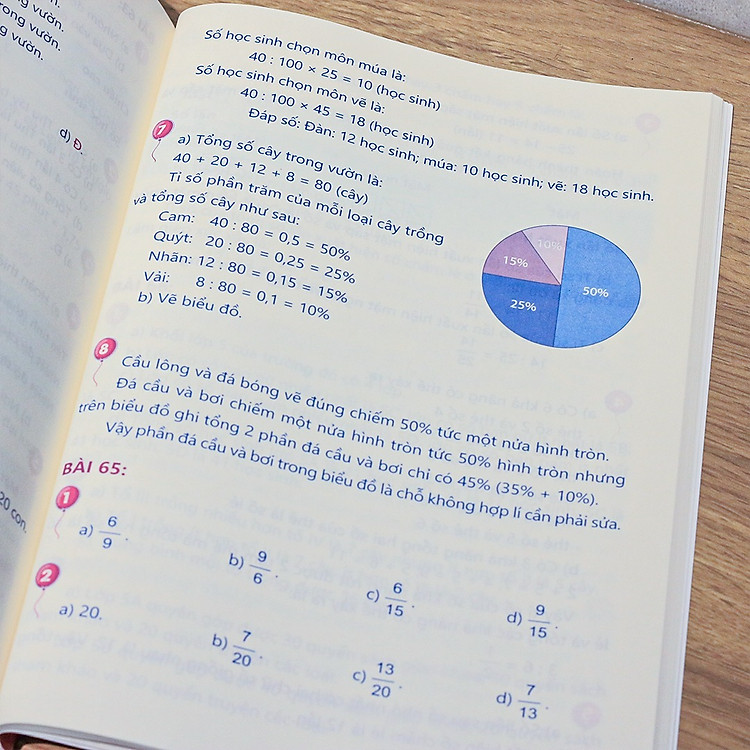 ong vườn.
rong vườn.
g vườn.
d) Đ.
20 con.
Số học sinh chọn môn múa là:
40 : 100 × 25 = 10 (học sinh)
Số học sinh chọn môn vẽ là:
40 : 100 × 45 = 18 (học sinh)
Đáp số; Đàn: 12 học sinh; múa: 10 học sinh; vẽ: 18 học sinh.
7
a) Tổng số cây trong vườn là:
40 + 20 + 12 + 8 = 80 (cây)
Tỉ số phần trăm của mỗi loại cây trồng
và tổng số cây như sau:
Cam: 40 : 80 = 0,5 = 50%
Quýt: 20 : 80 = 0,25 = 25%
Nhãn: 12 : 80 = 0,15 = 15%
Vải: 8 : 80 = 0,1 = 10%
b) Vẽ biểu đồ.
10%
15%
50%
25%
8
Cầu lông và đá bóng vẽ đúng chiếm 50% tức một nửa hình tròn.
Đá cầu và bơi chiếm một nửa hình tròn tức 50% hình tròn nhưng
trên biểu đồ ghi tổng 2 phần đá cầu và bơi chỉ có 45% (35% + 10%).
Vậy phần đá cầu và bơi trong biểu đồ là chỗ không hợp lí cần phải sửa.
BÀI 65:
1
a) 6/9. b) 9/6. c) 6/15. d) 9/15.
2
a) 20. b) 7/20. c) 13/20. d) 7/13.